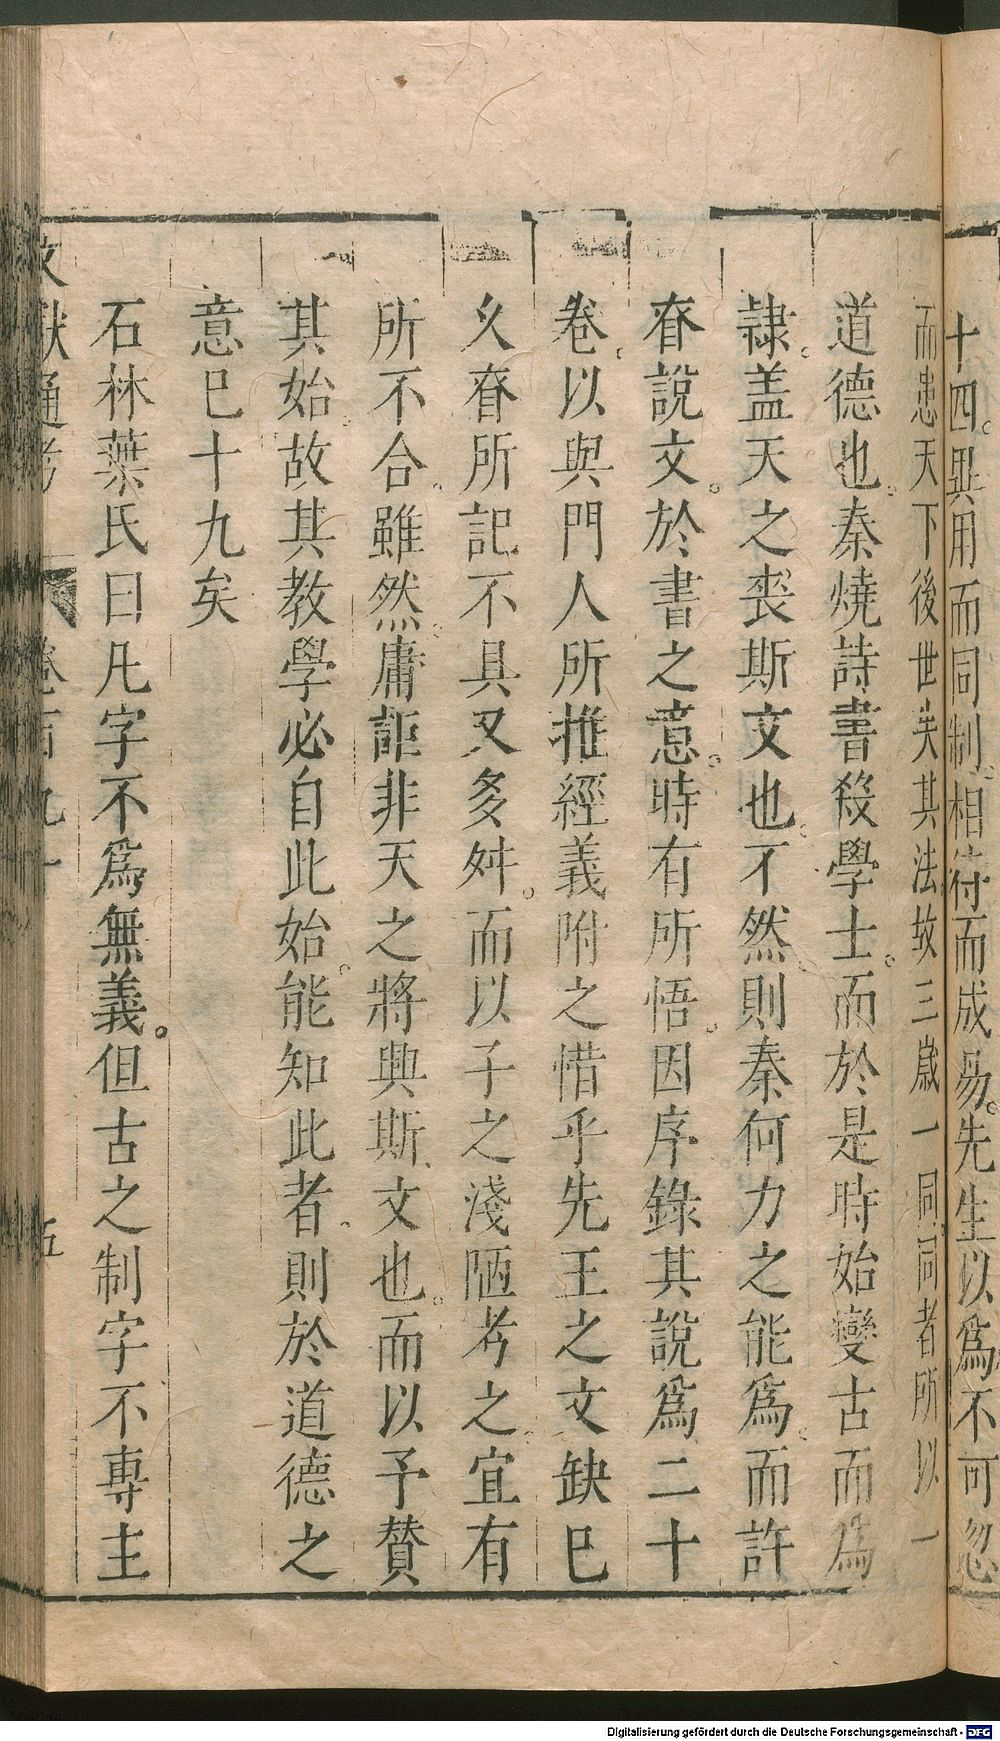 十四。異用而同制。相待而成易。先生以爲不可忽
而患天下後世失其法故三歲一同同者所以一
道德也。秦燒詩書殺學士。而於是時始變古而爲
隷。盖天之喪斯文也。不然則秦何力之能爲。而許
眘說文。於書之意。時有所悟。因序錄其說爲二十
卷。以與門人所推經義附之惜乎先王之文缺巳
久眘所記不具又多舛。而以子之淺陋考之。宜有
所不合。雖然。庸詎非天之將興斯文也。而以予贊
其始。故其教學必自此始。能知此者。則於道德之
意巳十九矣
石林葉氏曰凡字不爲無義。但古之制字不專主
文獻通考 卷百九十 五
Digitalisierung gefördert durch die Deutsche Forschungsgemeinschaft - DFG